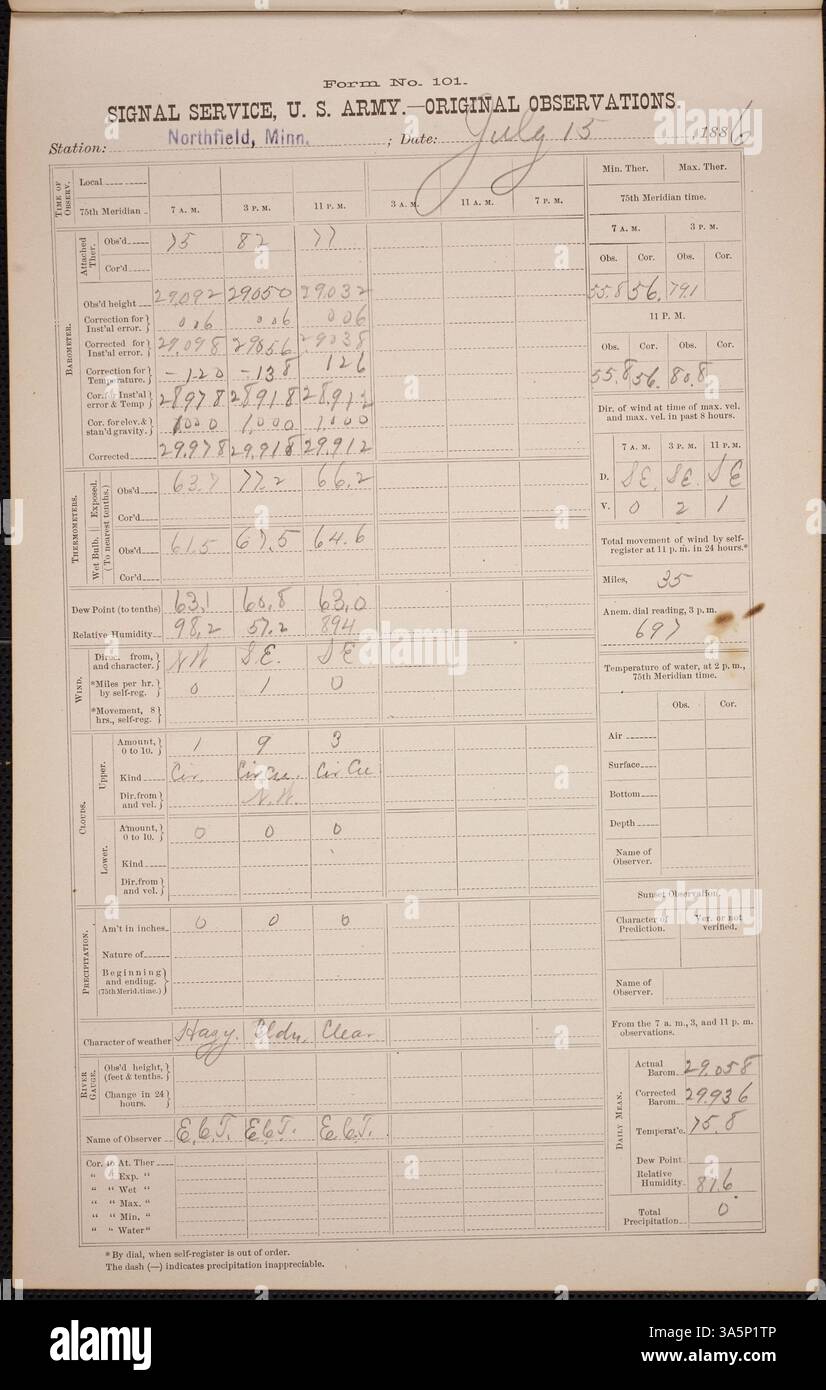 Form No. 101.
SIGNAL SERVICE, U. S. ARMY.—ORIGINAL OBSERVATIONS.
Station: Northfield, Minn. ; Date: July 15 , 1886
TIME OF OBSERV.
Local
75th Meridian 7 A. M. 3 P. M. 11 P. M. 3 A. M. 11 A. M. 7 P. M.
Attached Ther.
Obs'd 75 82 77
Cor'd
BAROMETER.
Obs'd height 29.092 29.050 29.032
Correction for Inst'al error. 006 006 006
Corrected for Inst'al error. 29.098 29056 29038
Correction for Temperature. -120 -138 126
Cor. for Inst'al error & Temp 28978 28918 28.912
Cor. for elev. & stan'd gravity. 1000 1,000 1,000
Corrected 29.978 29.918 29.912
THERMOMETERS.
Exposed.
Wet Bulb.
(To nearest tenths.)
Obs'd 63.7 77.2 66.2
Cor'd
Obs'd 61.5 67.5 64.6
Cor'd
Dew Point (to tenths) 63,1 60,8 63,0
Relative Humidity 98,2 57.2 894
WIND.
Direc. from, and character. NW S.E. SE
*Miles per hr. by self-reg. 0 1 0
*Movement, 8 hrs., self-reg.
CLOUDS.
Upper.
Amount, 0 to 10. 1 9 3
Kind Cir. Cir Cu. Cir Cu
Dir. from and vel. N.W.
Lower.
Amount, 0 to 10. 0 0 0
Kind
Dir. from and vel.
PRECIPITATION.
Am't in inches 0 0 0
Nature of
Beginning and ending. (75th Merid. time.)
Character of weather Hazy. Cldy. Clear
RIVER GAUGE.
Obs'd height, (feet & tenths.
Change in 24 hours.
Name of Observer E.C.T. E.C.T. E.C.T.
Cor. to At. Ther
" " Exp. "
" " Wet "
" " Max. "
" " Min. "
" " Water "
* By dial, when self-register is out of order.
The dash (—) indicates precipitation inappreciable.
Min. Ther. Max. Ther.
75th Meridian time.
7 A. M. 3 P. M.
Obs. Cor. Obs. Cor.
55.8 56. 79.1
11 P. M.
Obs. Cor. Obs. Cor.
55.8 56. 80.8
Dir. of wind at time of max. vel. and max. vel. in past 8 hours.
7 A. M. 3 P. M. 11 P. M.
D. SE. SE. SE
V. 0 2 1
Total movement of wind by self-register at 11 p. m. in 24 hours.*
Miles, 35
Anem. dial reading, 3 p. m.
697
Temperature of water, at 2 p. m., 75th Meridian time.
Obs. Cor.
Air
Surface
Bottom
Depth
Name of Observer.
Sunset Observation.
Character of Prediction. Ver. or not verified.
Name of Observer.
From the 7 a. m., 3, and 11 p. m. observations.
DAILY MEAN.
Actual Barom. 29.058
Corrected Barom. 29.936
Temperat'e. 75.8
Dew Point
Relative Humidity. 81.6
Total Precipitation 0
alamy
Image ID: 3A5P1TP
www.alamy.com